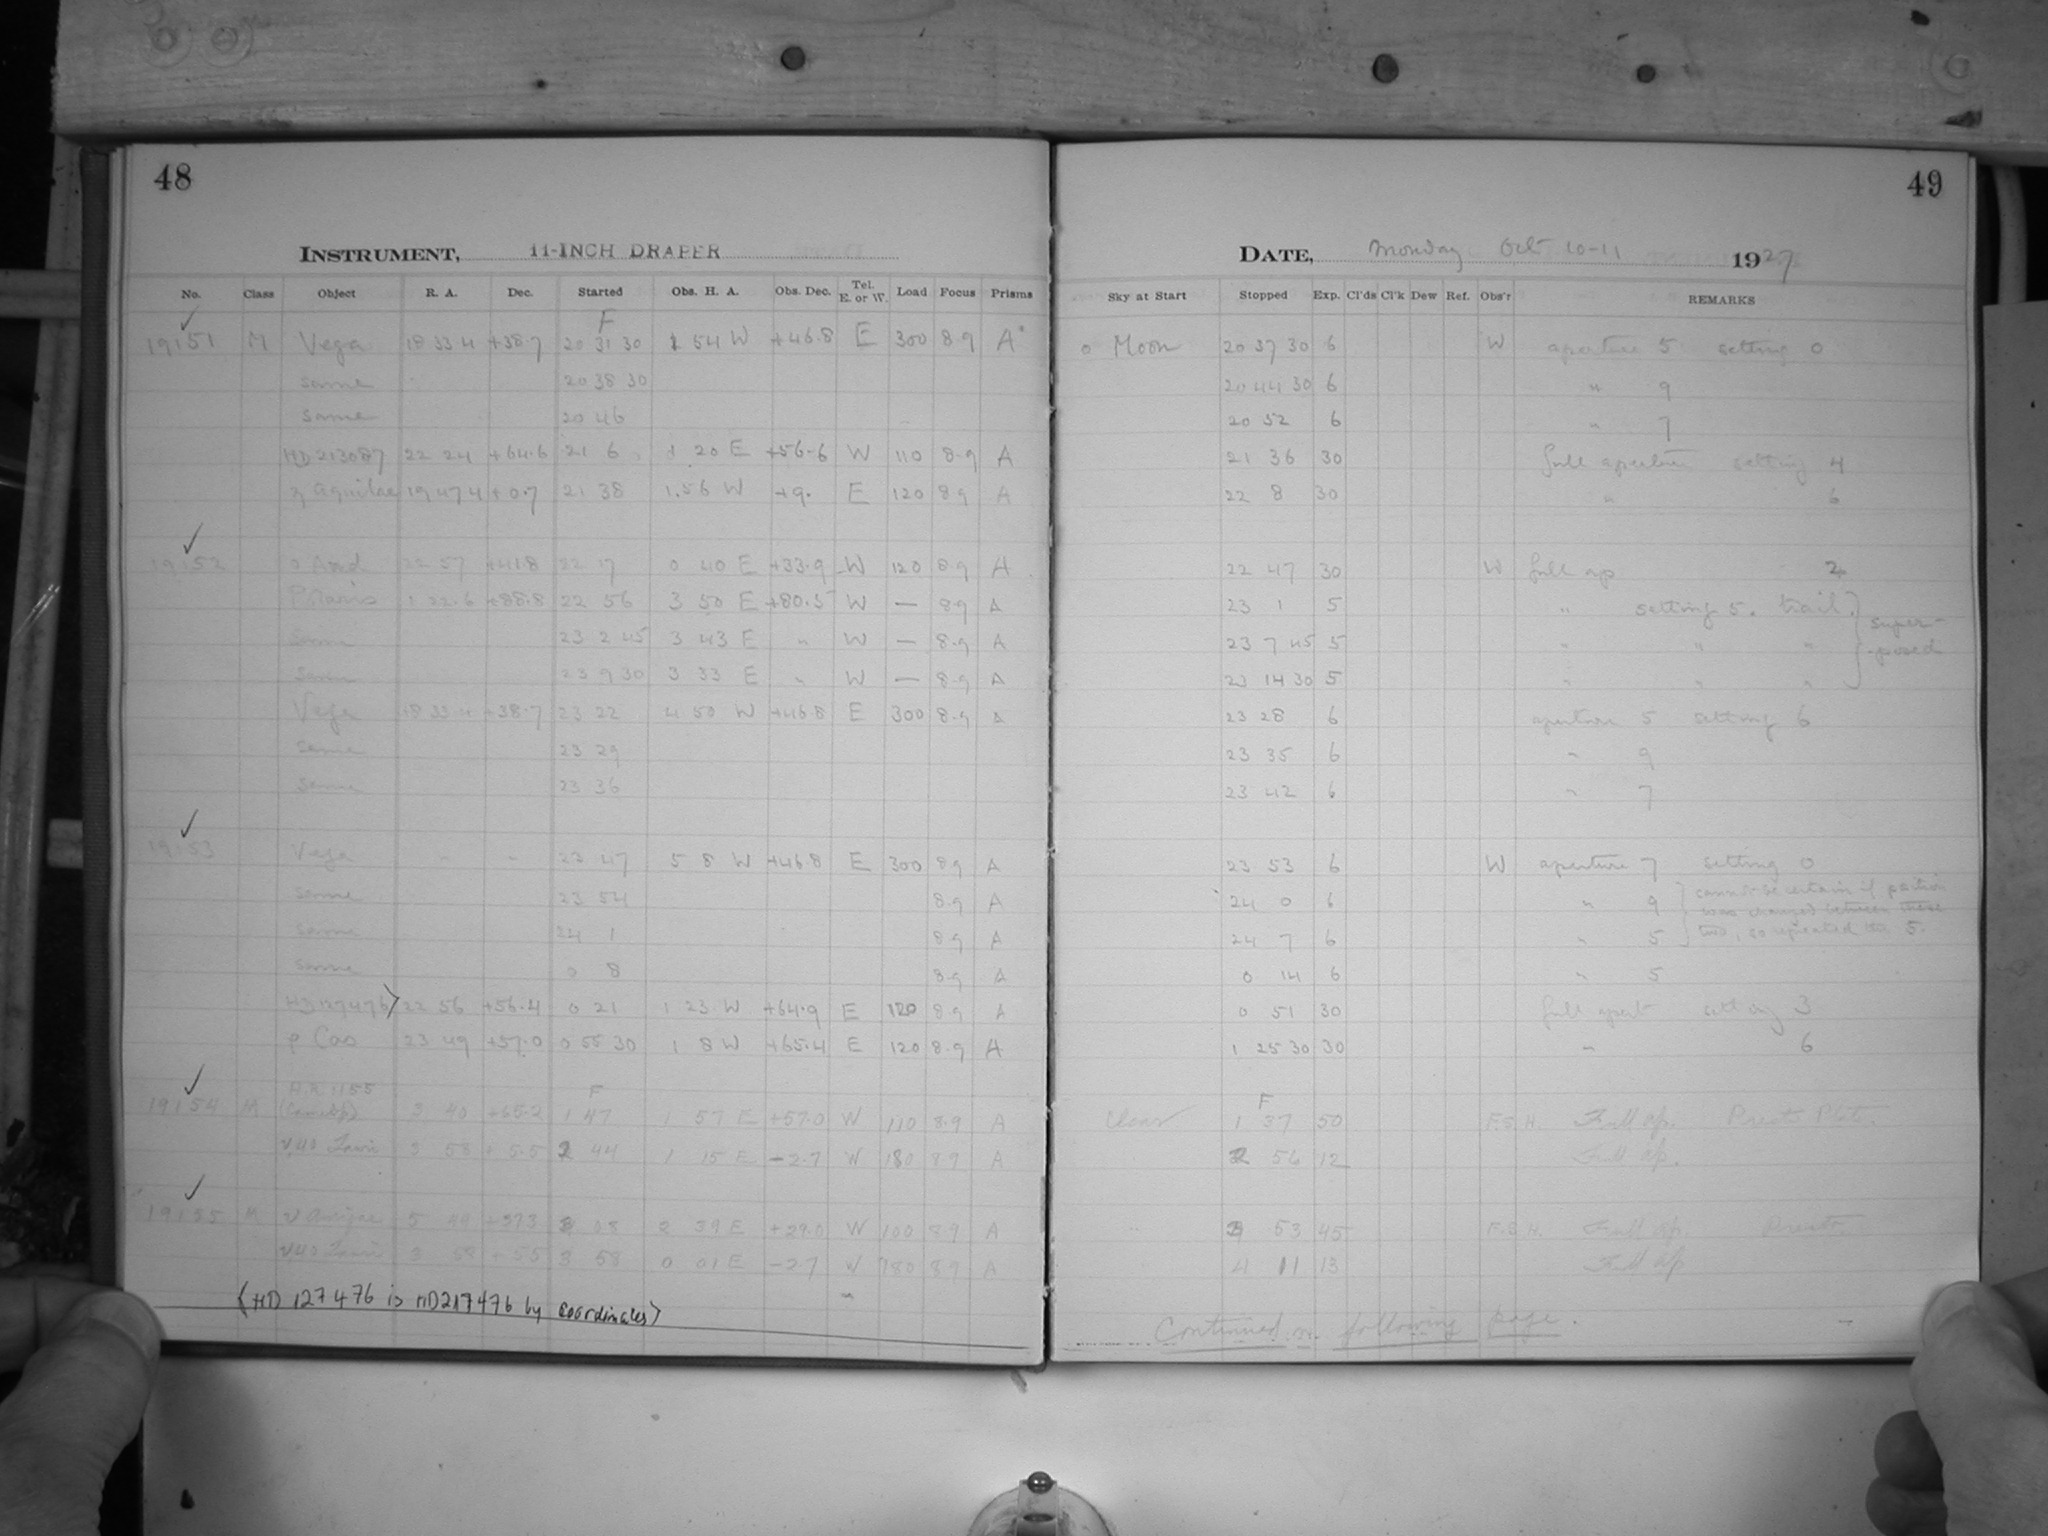 48
INSTRUMENT, 11-INCH DRAPER
No. Class Object R. A. Dec. Started Obs. H. A. Obs. Dec. Tel. E. or W. Load Focus Prisms
F
19151 M Vega 18 33 4 +38.7 20 31 30 1 54 W +46.8 E 300 8.9 A
same 20 38 30
same 20 46
HD 213087 22 24 +64.6 21 6 1 20 E +56.6 W 110 8.9 A
η Aquilae 19 47 4 +0.7 21 38 1.56 W +9. E 120 8.9 A
19152 o And 22 57 +41.8 22 17 0 40 E +33.9 W 120 8.9 A
Polaris 1 22.6 +88.8 22 56 3 50 E +80.5 W — 8.9 A
same 23 2 45 3 43 E " W — 8.9 A
same 23 9 30 3 33 E " W — 8.9 A
Vega 18 33.4 +38.7 23 22 4 50 W +46.8 E 300 8.9 A
same 23 29
same 23 36
19153 Vega " " 23 47 5 8 W +46.8 E 300 8.9 A
same 23 54 8.9 A
same 24 1 8.9 A
same 0 8 8.9 A
HD 127476 22 56 +56.4 0 21 1 23 W +64.9 E 120 8.9 A
ρ Cas 23 49 +57.0 0 55 30 1 8 W +65.4 E 120 8.9 A
H.R. 1155 F
19154 M (Camelop) 3 40 +65.2 1 47 1 57 E +57.0 W 110 8.9 A
Tauri 3 58 +5.5 2 44 1 15 E -2.7 W 180 8.9 A
19155 M 5 44 +37.3 3 08 2 39 E +29.0 W 100 8.9 A
Tauri 3 58 +5.5 3 58 0 01 E -2.7 W 180 8.9 A
(HD 127476 is HD217476 by coordinates)
49
DATE, Monday Oct 10-11 1927
Sky at Start Stopped Exp. Cl'ds Cl'k Dew Ref. Obs'r REMARKS
o Moon 20 37 30 6 W aperture 5 setting 0
20 44 30 6 " 9
20 52 6 " 7
21 36 30 full aperture setting 4
22 8 30 " 6
22 47 30 W full ap 2
23 1 5 " setting 5. trail.
23 7 45 5 " " " super-
23 14 30 5 " " " -posed
23 28 6 aperture 5 setting 6
23 35 6 " 9
23 42 6 " 7
23 53 6 W aperture 7 setting 0
24 0 6 " 9 cannot be certain if position
was changed between these
24 7 6 " 5 two, so repeated the 5.
0 14 6 " 5
0 51 30 full apert setting 3
1 25 30 30 " 6
F
Clear 1 37 50 F.S.H. Full ap. Presto Plate.
2 56 12 Full ap.
" 3 53 45 F.S.H. Full ap. Presto.
4 11 13 Full ap
Continued on following page.